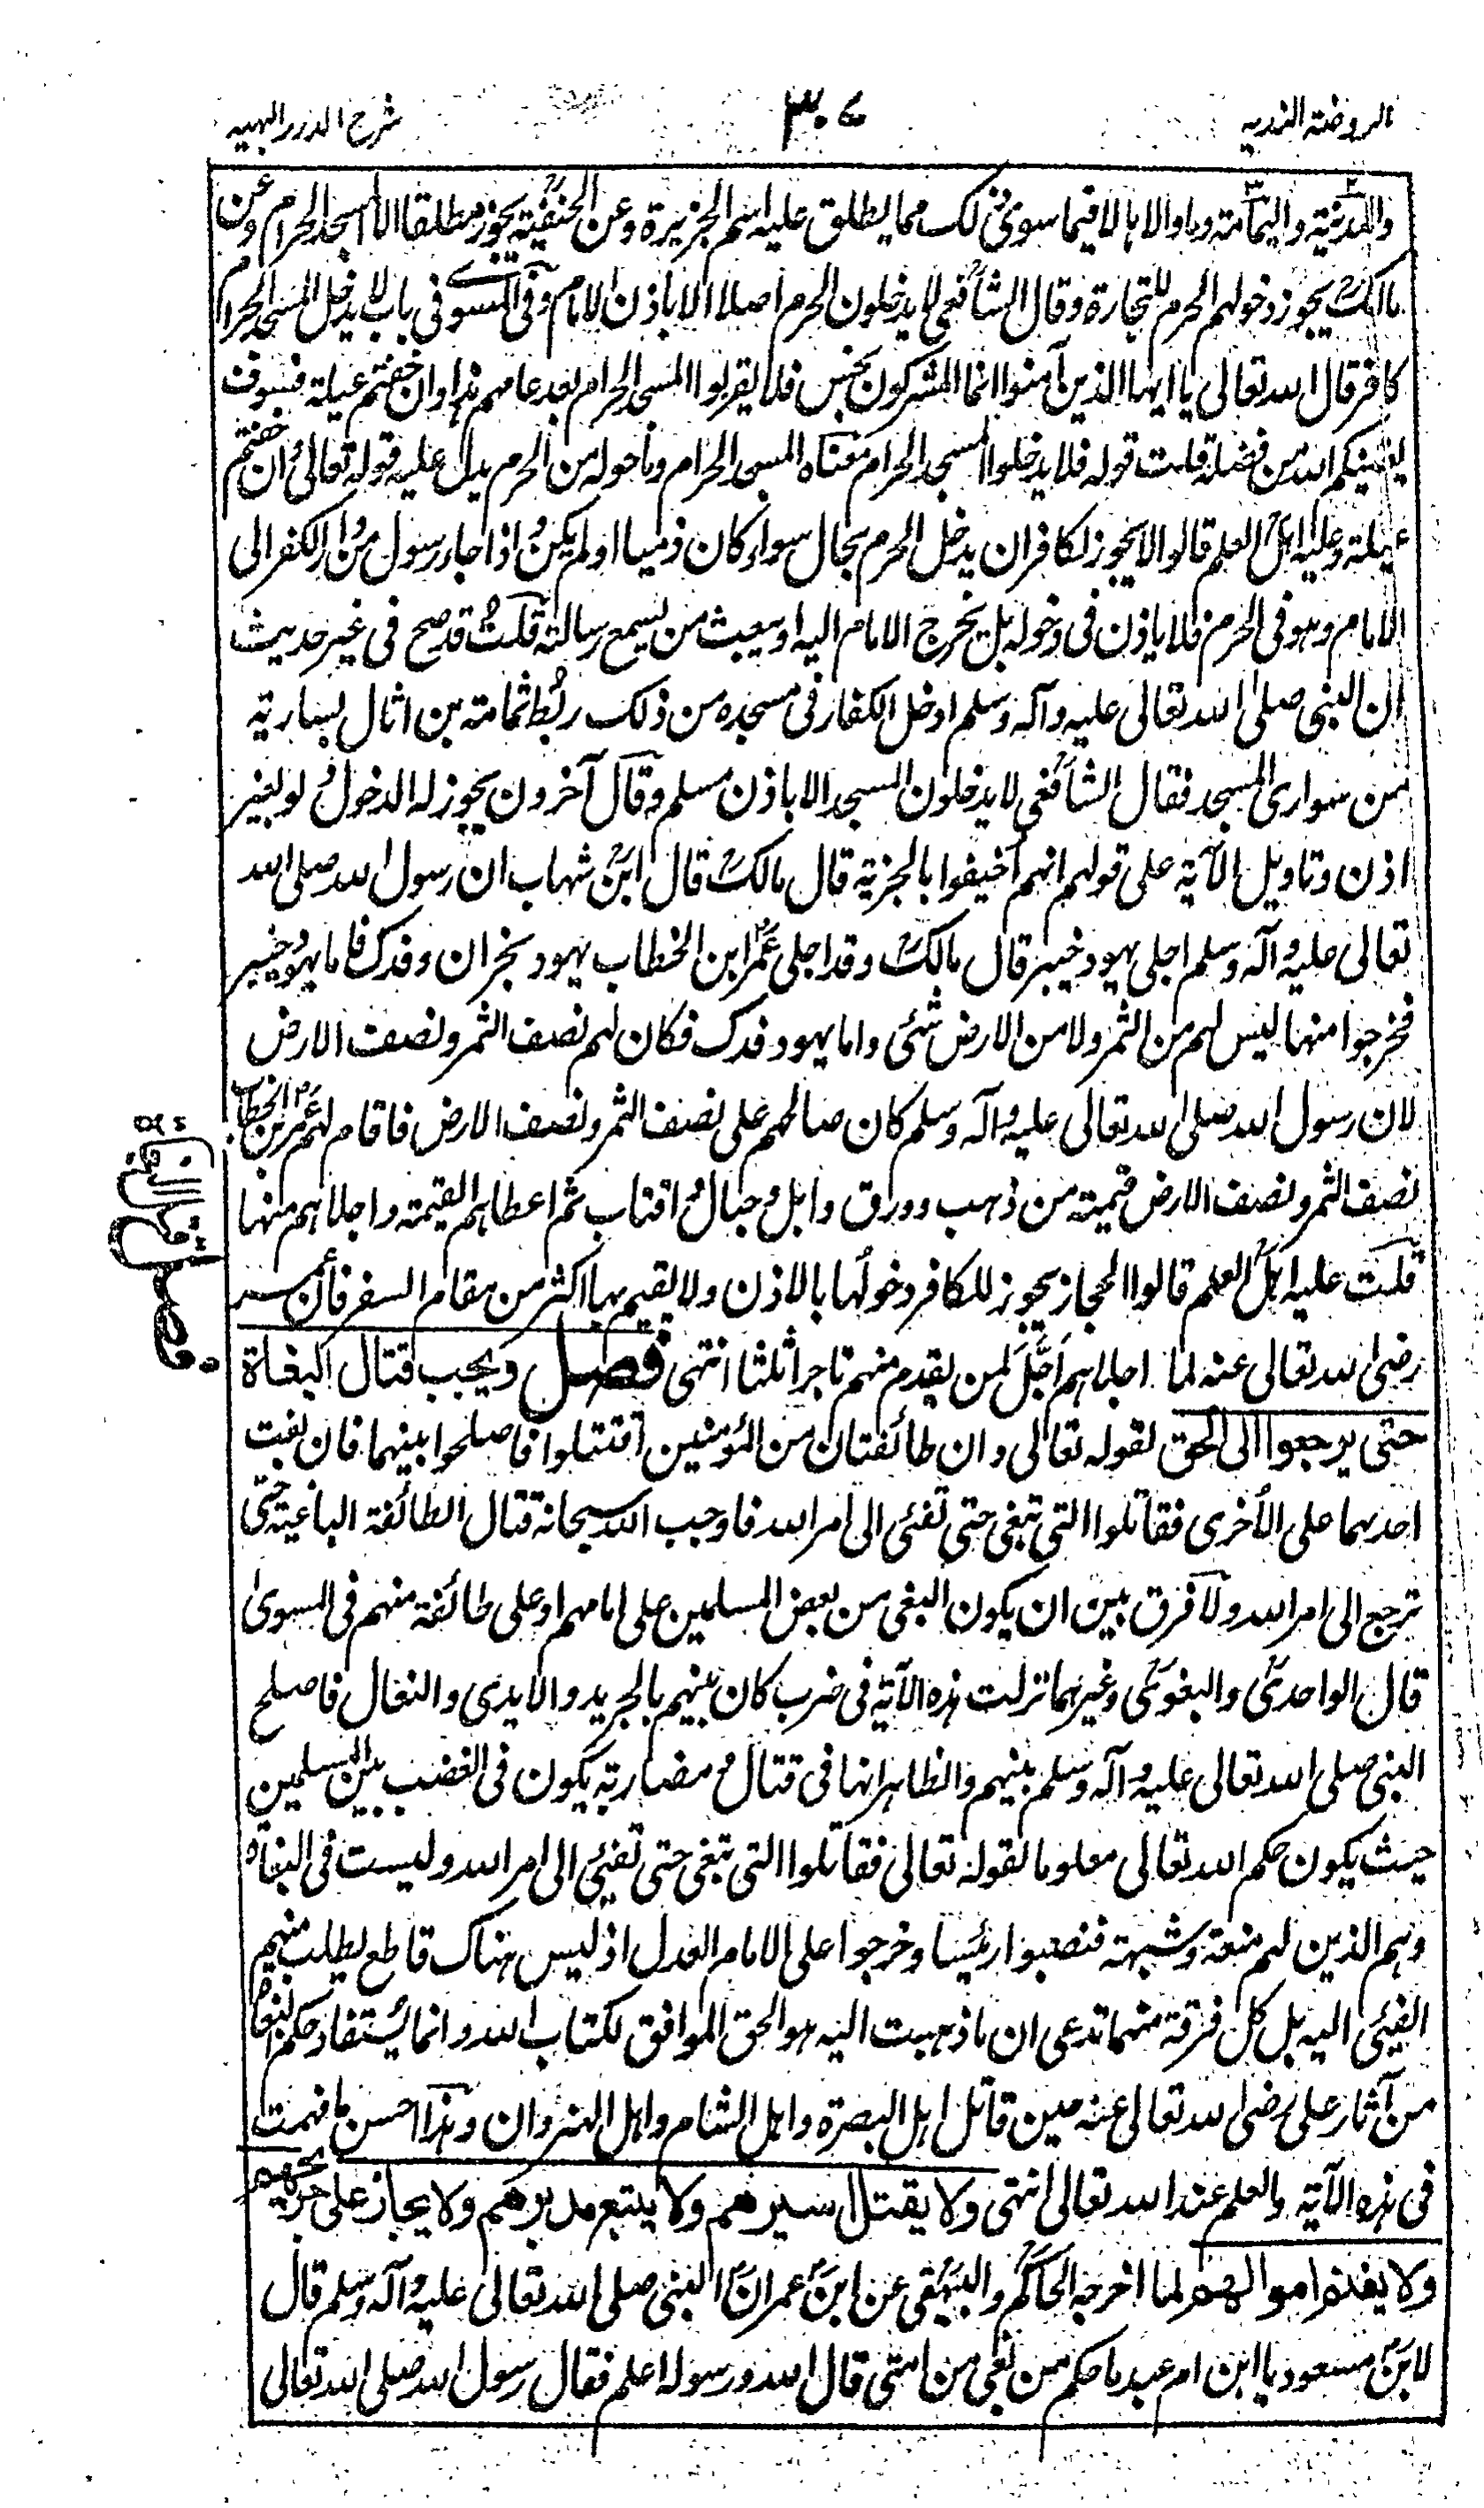 الروضة الندية
٣٠٤
شرح الدرر البهية
والمدينة واليمامة وما والاها لا فيما سوى ذلك مما يطلق عليه اسم الجزيرة وعن الحنفية يجوز مطلقا الا المسجد الحرام وعن
مالك يجوز دخولهم الحرم للتجارة وقال الشافعي لا يدخلون الحرم اصلا الا باذن الامام وفي المسوى في باب لا يدخل المسجد الحرام
كافر قال الله تعالى يا ايها الذين آمنوا انما المشركون نجس فلا يقربوا المسجد الحرام بعد عامهم هذا وان خفتم عيلة فسوف
يغنيكم الله من فضله قلت قوله فلا يدخلوا المسجد الحرام معناه المسجد الحرام وما حوله من الحرم يدل عليه قوله تعالى وان خفتم
عيلة وعليه اهل العلم قالوا لا يجوز لكافر ان يدخل الحرم بحال سواء كان ذميا او لم يكن واذا جاء رسول من دار الكفر الى
الامام وهو في الحرم فلا ياذن في دخوله بل يخرج الامام اليه او يبعث من يسمع رسالته قلت قد صح في غير حديث
ان النبي صلى الله تعالى عليه وآله وسلم ادخل الكفار في مسجده من ذلك ربط ثمامة بن اثال بسارية
من سواري المسجد فقال الشافعي لا يدخلون المسجد الا باذن مسلم وقال آخرون يجوز له الدخول ولو بغير
اذن وتاويل الآية على قولهم انهم اخيفوا بالجزية قال مالك قال ابن شهاب ان رسول الله صلى الله
تعالى عليه وآله وسلم اجلى يهود خيبر قال مالك وقد اجلى عمر ابن الخطاب يهود نجران وفدك فاما يهود خيبر
فخرجوا منها ليس لهم من الثمر ولا من الارض شئ واما يهود فدك فكان لهم نصف الثمر ونصف الارض
لان رسول الله صلى الله تعالى عليه وآله وسلم كان صالحهم على نصف الثمر ونصف الارض فاقام لهم عمر بن الخطاب
نصف الثمر ونصف الارض قيمته من ذهب وورق وابل وحبال واقتاب ثم اعطاهم القيمة واجلاهم منها
قلت عليه اهل العلم قالوا الحجاز يجوز للكافر دخولها بالاذن ولا يقيم بها اكثر من مقام السفر فان
رضي الله تعالى عنه لما اجلاهم اجل لمن يقدم منهم تاجرا ثلثا انتهى فصل ويجب قتال البغاة
حتى يرجعوا الى الحق لقوله تعالى وان طائفتان من المؤمنين اقتتلوا فاصلحوا بينهما فان بغت
احدهما على الأخرى فقاتلوا التي تبغي حتى تفئ الى امر الله فاوجب الله سبحانه قتال الطائفة الباغية حتى
ترجع الى امر الله ولا فرق بين ان يكون البغي من بعض المسلمين على امامهم او على طائفة منهم في المسوى
قال الواحدي والبغوي وغيرهما نزلت هذه الآية في ضرب كان بينهم بالجريد والايدي والنعال فاصلح
النبي صلى الله تعالى عليه وآله وسلم بينهم والظاهر انها في قتال ومضاربة يكون في الغضب بين المسلمين
حيث يكون حكم الله تعالى معلوما لقوله تعالى فقاتلوا التي تبغي حتى تفيئ الى امر الله وليست في البغاة
وهم الذين لهم منعة وشبهة فنصبوا رئيسا وخرجوا على الامام العدل اذ ليس هناك قاطع يطلب منهم
الفيئ اليه بل كل فرقة منهما تدعي ان ما ذهبت اليه هو الحق الموافق لكتاب الله وانما يستفاد حكم البغاة
من آثار علي رضي الله تعالى عنه حين قاتل اهل البصرة واهل الشام واهل النهروان وهذا احسن ما فهمت
في هذه الآية والعلم عند الله تعالى انتهى ولا يقتل اسيرهم ولا يتبع مدبرهم ولا يجاز على جريحهم
ولا يغنم اموالهم لما اخرجه الحاكم والبيهقي عن ابن عمر ان النبي صلى الله تعالى عليه وآله وسلم قال
لابن مسعود يا ابن ام عبد ما حكم من بغى من امتي قال الله ورسوله اعلم فقال رسول الله صلى الله تعالى